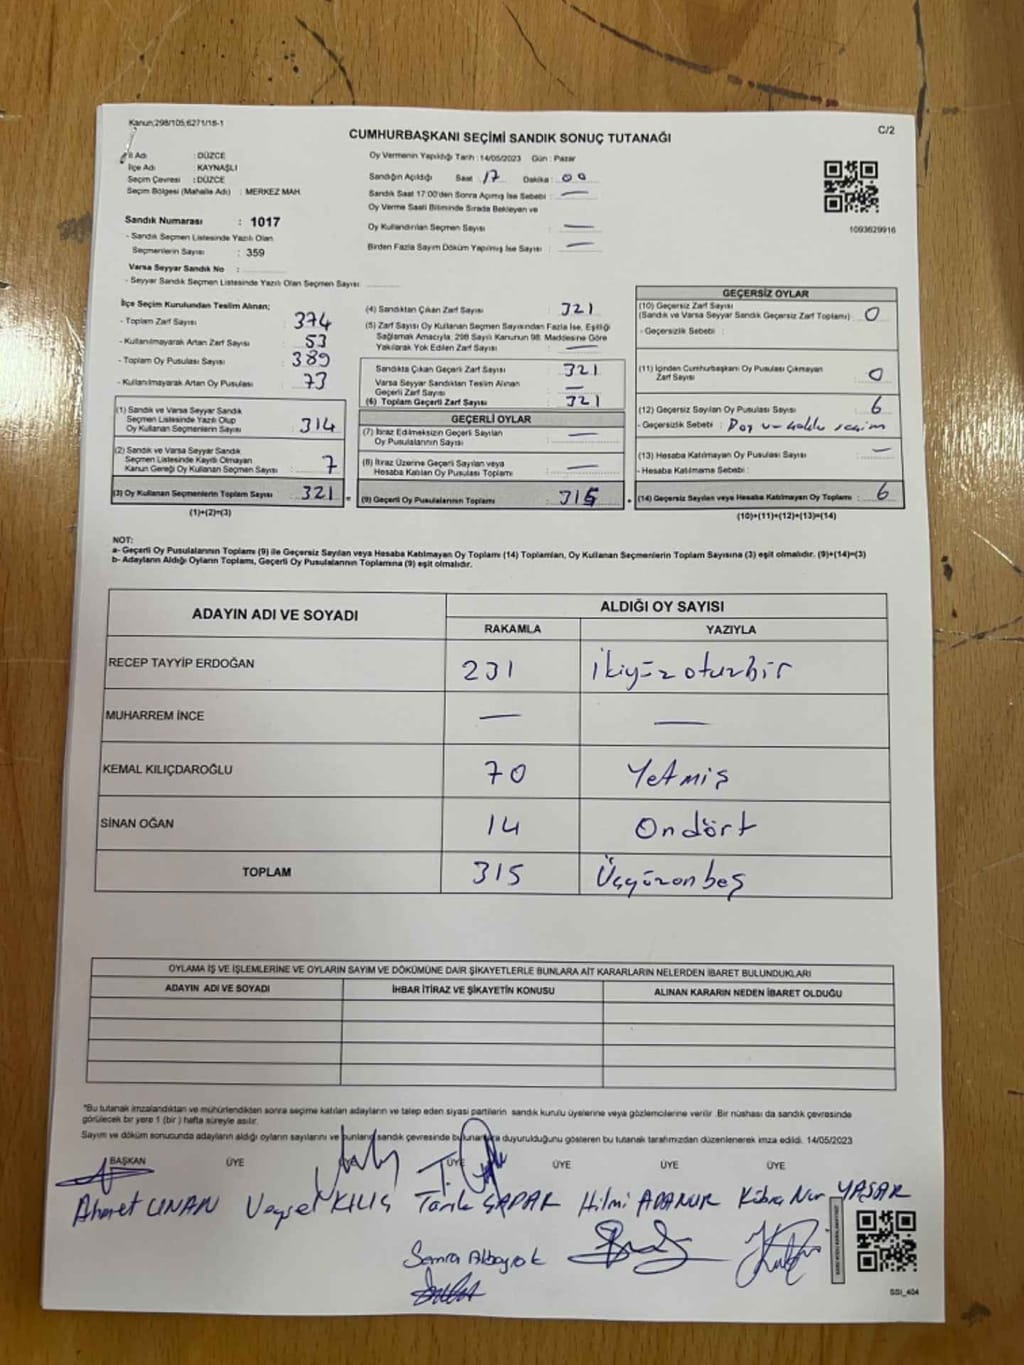 Kanun;298/105;6271/18-1
C/2
CUMHURBAŞKANI SEÇİMİ SANDIK SONUÇ TUTANAĞI
İl Adı : DÜZCE
İlçe Adı : KAYNAŞLI
Seçim Çevresi : DÜZCE
Seçim Bölgesi (Mahalle Adı) : MERKEZ MAH.
Sandık Numarası : 1017
- Sandık Seçmen Listesinde Yazılı Olan
Seçmenlerin Sayısı : 359
Varsa Seyyar Sandık No :
- Seyyar Sandık Seçmen Listesinde Yazılı Olan Seçmen Sayısı:
Oy Vermenin Yapıldığı Tarih : 14/05/2023 Gün : Pazar
Sandığın Açıldığı Saat : 17 Dakika : 00
Sandık Saat 17:00'den Sonra Açmış İse Sebebi : —
Oy Verme Saati Bitiminde Sırada Bekleyen ve
Oy Kullandırılan Seçmen Sayısı : —
Birden Fazla Sayım Döküm Yapılmış İse Sayısı : —
1093629916
İlçe Seçim Kurulundan Teslim Alınan;
- Toplam Zarf Sayısı : 374
- Kullanılmayarak Artan Zarf Sayısı : 53
- Toplam Oy Pusulası Sayısı : 389
- Kullanılmayarak Artan Oy Pusulası : 73
(1) Sandık ve Varsa Seyyar Sandık
Seçmen Listesinde Yazılı Olup
Oy Kullanan Seçmenlerin Sayısı : 314
(2) Sandık ve Varsa Seyyar Sandık
Seçmen Listesinde Kayıtlı Olmayan
Kanun Gereği Oy Kullanan Seçmen Sayısı : 7
(3) Oy Kullanan Seçmenlerin Toplam Sayısı : 321 =
(1)+(2)=(3)
(4) Sandıktan Çıkan Zarf Sayısı : 321
(5) Zarf Sayısı Oy Kullanan Seçmen Sayısından Fazla İse, Eşitliği
Sağlamak Amacıyla, 298 Sayılı Kanunun 98. Maddesine Göre
Yakılarak Yok Edilen Zarf Sayısı : —
Sandıkta Çıkan Geçerli Zarf Sayısı : 321
Varsa Seyyar Sandıktan Teslim Alınan
Geçerli Zarf Sayısı : —
(6) Toplam Geçerli Zarf Sayısı : 321
GEÇERLİ OYLAR
(7) İtiraz Edilmeksizin Geçerli Sayılan
Oy Pusulalarının Sayısı : —
(8) İtiraz Üzerine Geçerli Sayılan veya
Hesaba Katılan Oy Pusulası Toplamı : —
(9) Geçerli Oy Pusulalarının Toplamı : 315 +
GEÇERSİZ OYLAR
(10) Geçersiz Zarf Sayısı
(Sandık ve Varsa Seyyar Sandık Geçersiz Zarf Toplamı) : 0
- Geçersizlik Sebebi :
(11) İçinden Cumhurbaşkanı Oy Pusulası Çıkmayan
Zarf Sayısı : 0
(12) Geçersiz Sayılan Oy Pusulası Sayısı : 6
- Geçersizlik Sebebi :
(13) Hesaba Katılmayan Oy Pusulası Sayısı : —
- Hesaba Katılmama Sebebi :
(14) Geçersiz Sayılan veya Hesaba Katılmayan Oy Toplamı : 6
(10)+(11)+(12)+(13)=(14)
NOT:
a- Geçerli Oy Pusulalarının Toplamı (9) ile Geçersiz Sayılan veya Hesaba Katılmayan Oy Toplamı (14) Toplamları, Oy Kullanan Seçmenlerin Toplam Sayısına (3) eşit olmalıdır. (9)+(14)=(3)
b- Adayların Aldığı Oyların Toplamı, Geçerli Oy Pusulalarının Toplamına (9) eşit olmalıdır.
ADAYIN ADI VE SOYADI ALDIĞI OY SAYISI
RAKAMLA YAZIYLA
RECEP TAYYİP ERDOĞAN 231 İkiyüzotuzbir
MUHARREM İNCE — —
KEMAL KILIÇDAROĞLU 70 Yetmiş
SİNAN OĞAN 14 Ondört
TOPLAM 315 Üçyüzonbeş
OYLAMA İŞ VE İŞLEMLERİNE VE OYLARIN SAYIM VE DÖKÜMÜNE DAİR ŞİKAYETLERLE BUNLARA AİT KARARLARIN NELERDEN İBARET BULUNDUKLARI
ADAYIN ADI VE SOYADI İHBAR İTİRAZ VE ŞİKAYETİN KONUSU ALINAN KARARIN NEDEN İBARET OLDUĞU
*Bu tutanak imzalandıktan ve mühürlendikten sonra seçime katılan adayların ve talep eden siyasi partilerin sandık kurulu üyelerine veya gözlemcilerine verilir. Bir nüshası da sandık çevresinde
görülecek bir yere 1 (bir) hafta süreyle asılır.
Sayım ve döküm sonucunda adayların aldığı oyların sayılarını ve bunların sandık çevresinde bulunanlara duyurulduğunu gösteren bu tutanak tarafımızdan düzenlenerek imza edildi. 14/05/2023
BAŞKAN ÜYE ÜYE ÜYE ÜYE ÜYE
Ahmet UNAN Veysel KILIÇ Tarık ŞAPAR Hilmi ADANUR Kübra Nur YAŞAR
Semra Albayrak
SSI_404